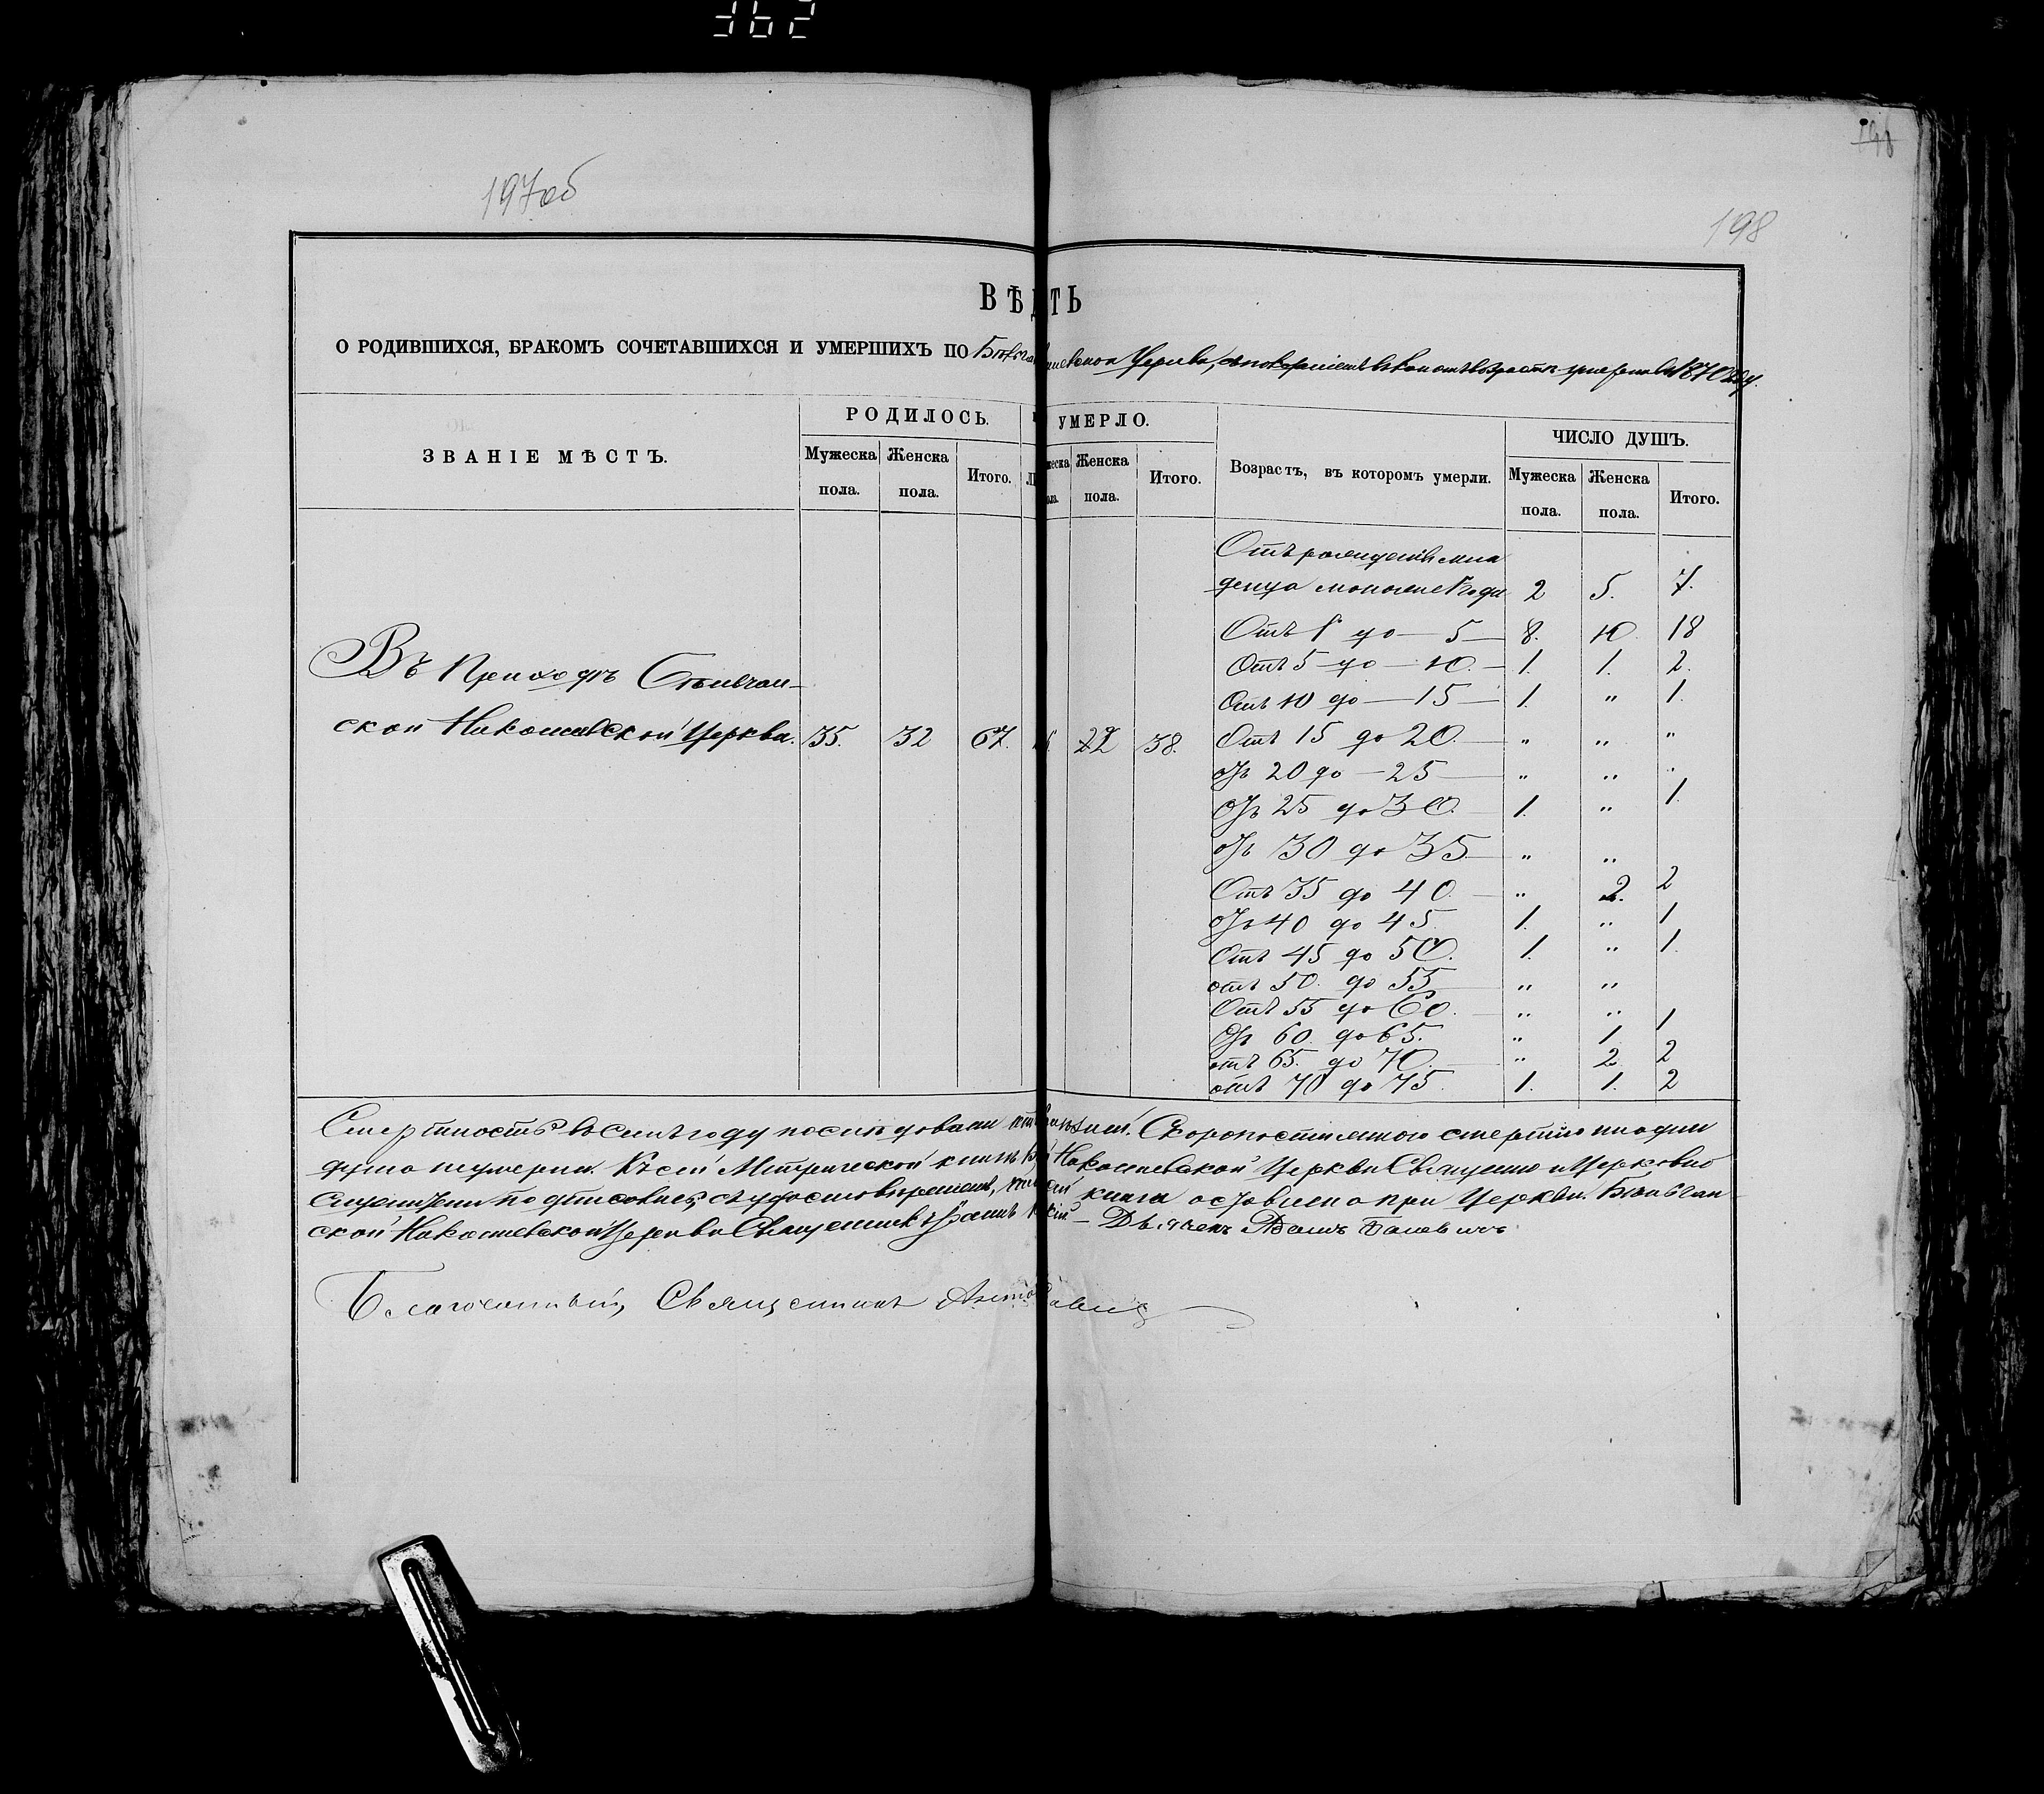 362
197об
198
198
ВѢД ТЬ
О РОДИВШИХСЯ, БРАКОМЪ СОЧЕТАВШИХСЯ И УМЕРШИХЪ ПО Церкви, 1870 году.
ЗВАНІЕ МѢСТЪ.
РОДИЛОСЬ.
УМЕРЛО.
Возрастъ, въ которомъ умерли.
ЧИСЛО ДУШЪ.
Мужеска пола.
Женска пола.
Итого.
Женска пола.
Итого.
Мужеска пола.
Женска пола.
Итого.
Въ Приходѣ
ской Накошевской Церкви. 35. 32 67. 22 38.
Отъ рожденія мла
денца моложе 1 года 2 5. 7.
Отъ 1 до — 5 — 8. 10. 18
Отъ 5 до — 10. — 1. 1. 2.
Отъ 10 до — 15 — 1. " 1.
Отъ 15 до 20. — " " "
Отъ 20 до — 25 — " " "
Отъ 25 до 30. — 1. " 1.
Отъ 30 до 35 — " "
Отъ 35 до 40. — " 2. 2
Отъ 40 до 45 1. " 1.
Отъ 45 до 50. 1. " 1.
отъ 50. до 55 — " "
Отъ 55 до 60. — " "
Отъ 60. до 65. " 1 1
отъ 65. до 70. — " 2 2
отъ 70 до 75. 1. 1. 2
Смертность въ семъ году послѣдовала Скоропостижною смертію ни одна
душа не умерла. Къ сей Метрической книгѣ Накошевской Церкви Священно и Церковно
служители подписались, съ удостовѣреніемъ, книга оставлена при Церкви.
ской Накошевской Церкви Священникъ — Дьячекъ Адамъ
Благочинный, Священникъ